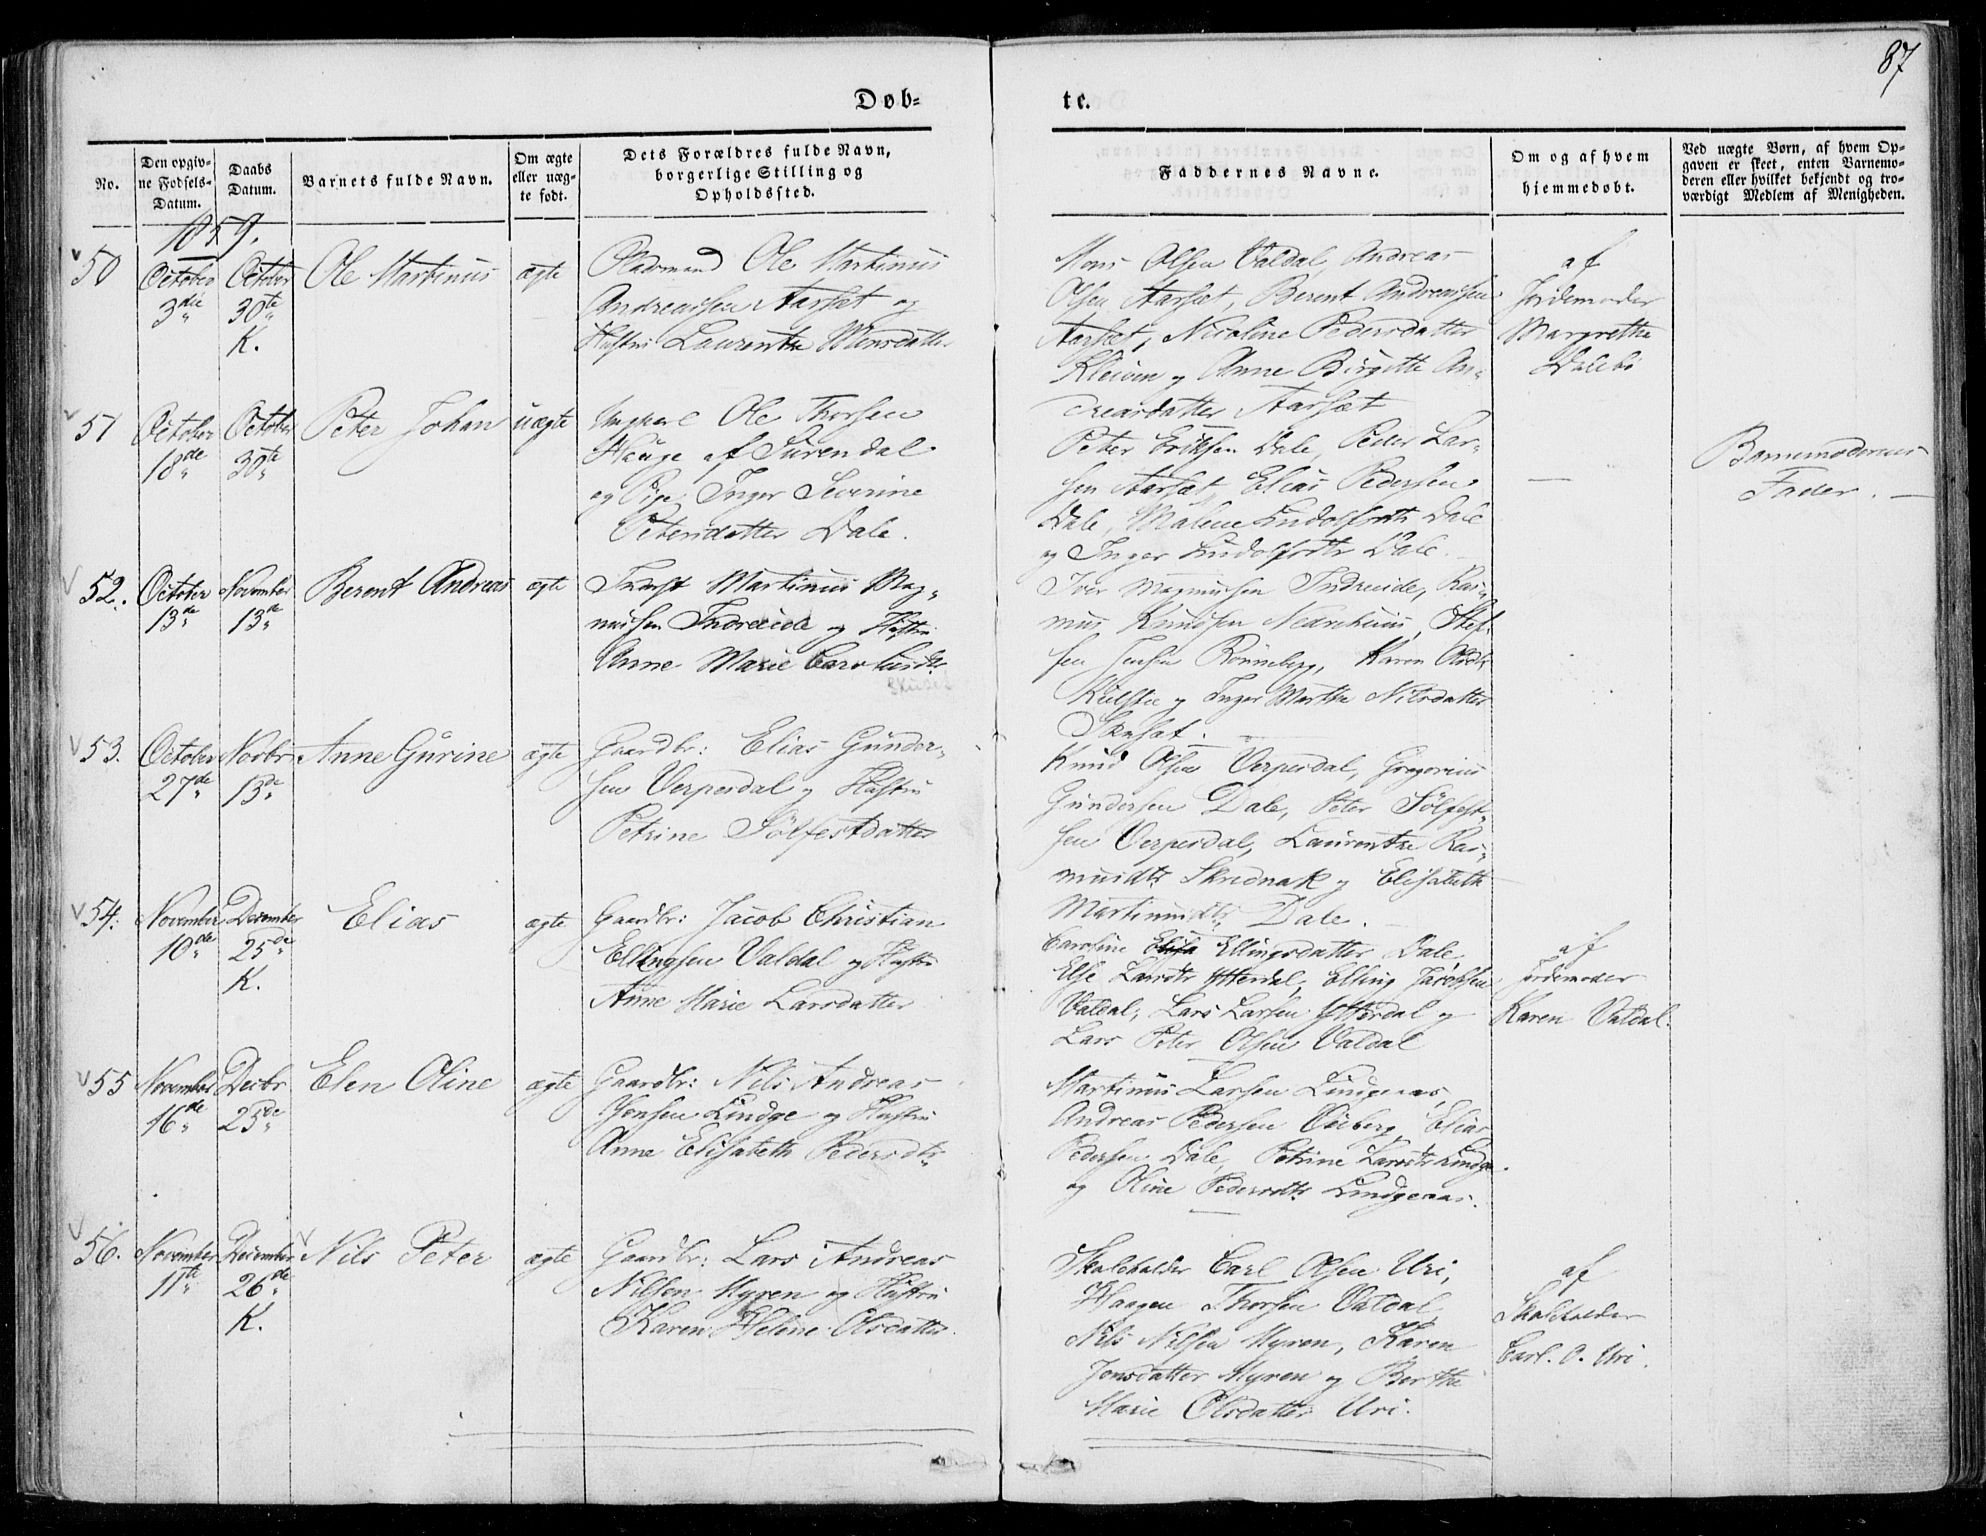 87
Døb-
te.
No.
Den opgiv-
ne Fødsels-
Datum.
Daabs
Datum.
Barnets fulde Navn.
Om ægte
eller uæg-
te født.
Dets Forældres fulde Navn,
borgerlige Stilling og
Opholdssted.
Faddernes Navne.
Om og af hvem
hjemmedøbt.
Ved uægte Børn, af hvem Op-
gaven er skeet, enten Barnemo-
deren eller hvilket bekjendt og tro-
værdigt Medlem af Menigheden.
1859.
50
October
3die
October
30te
K.
Ole Martinus
ægte
Pladsmand Ole Martinus
Andreassen Aarset og
Hustru Laurentze Monsdatter
Mons Olsen Valdal, Andreas
Olsen Aarset, Berent Andreassen
Aarset, Nicoline Pedersdatter
Kleiven og Anne Birgitte An-
dreasdatter Aarset
af
Jordemoder
Margrethe
Dalebø
51
October
18de
October
30te
Peter Johan
uægte
Ungkarl Ole Thorsen
Hauge af Surendal
og Pige Inger Severine
Petersdatter Dale.
Peter Eriksen Dale, Peder Lar-
sen Aarset, Elias Pedersen
Dale, Malene Ludolfsdtr Dale
og Inger Ludolfsdtr Dale.
—
Barnemoderens
Fader. —
52.
October
13de
November
13de
Berent Andreas
ægte
Inderst Martinus Mag-
nussen Indreeide og Hustru
Anne Marie Carolusdtr
Iver Magnussen Indreeide, Ras-
mus Knudsen
sen Jensen Rønneberg, Karen
og Inger Marthe Nilsdatter
53.
October
27de
Novbr
13de
Anne Gurine
ægte
Gaardbr: Elias Gunder-
sen Verpesdal og Hustru
Petrine Sølfestdatter
Knud Olsen Verpesdal, Gregorius
Gundersen Dale, Peter Sølfest-
sen Verpesdal, Laurentze Ras-
musdtr Skrednak og Elisabeth
Martinusdtr Dale.
54.
November
10de
December
25de
K.
Elias
ægte
Gaardbr: Jacob Christian
Ellingsen Valdal og Hustru
Anne Marie Larsdatter
Caroline Ellingsdatter Dale
Else Larsdtr Ytterdal, Elling Jacobsen
Valdal, Lars Larsen Ytterdal og
Lars Peter Olsen Valdal
af
Jordemoder
Karen Valdal.
55
November
16de
Decbr
25de
Elen Oline
ægte
Gaardbr: Nils Andreas
Jensen Lindge og Hustru
Anne Elisabeth Pedersdtr
Martinus Larsen Lindgenæs,
Andreas Pedersen Elias
Pedersen Dale, Petrine Larsdtr Lindge
og Oline Pedersdtr Lindgenæs.
56.
November
11te
December
26de
K.
Nils Peter
ægte
Gaardbr: Lars Andreas
Nilsen Myren og Hustru
Karen Helene Olsdatter.
Skoleholder Carl Olsen Uri,
Haagen Thorsen Valdal
Nils Nilsen Myren, Karen
Jonsdatter Myren og Berthe
Marie Olsdatter Uri.
af
Skoleholder
Carl. O. Uri.